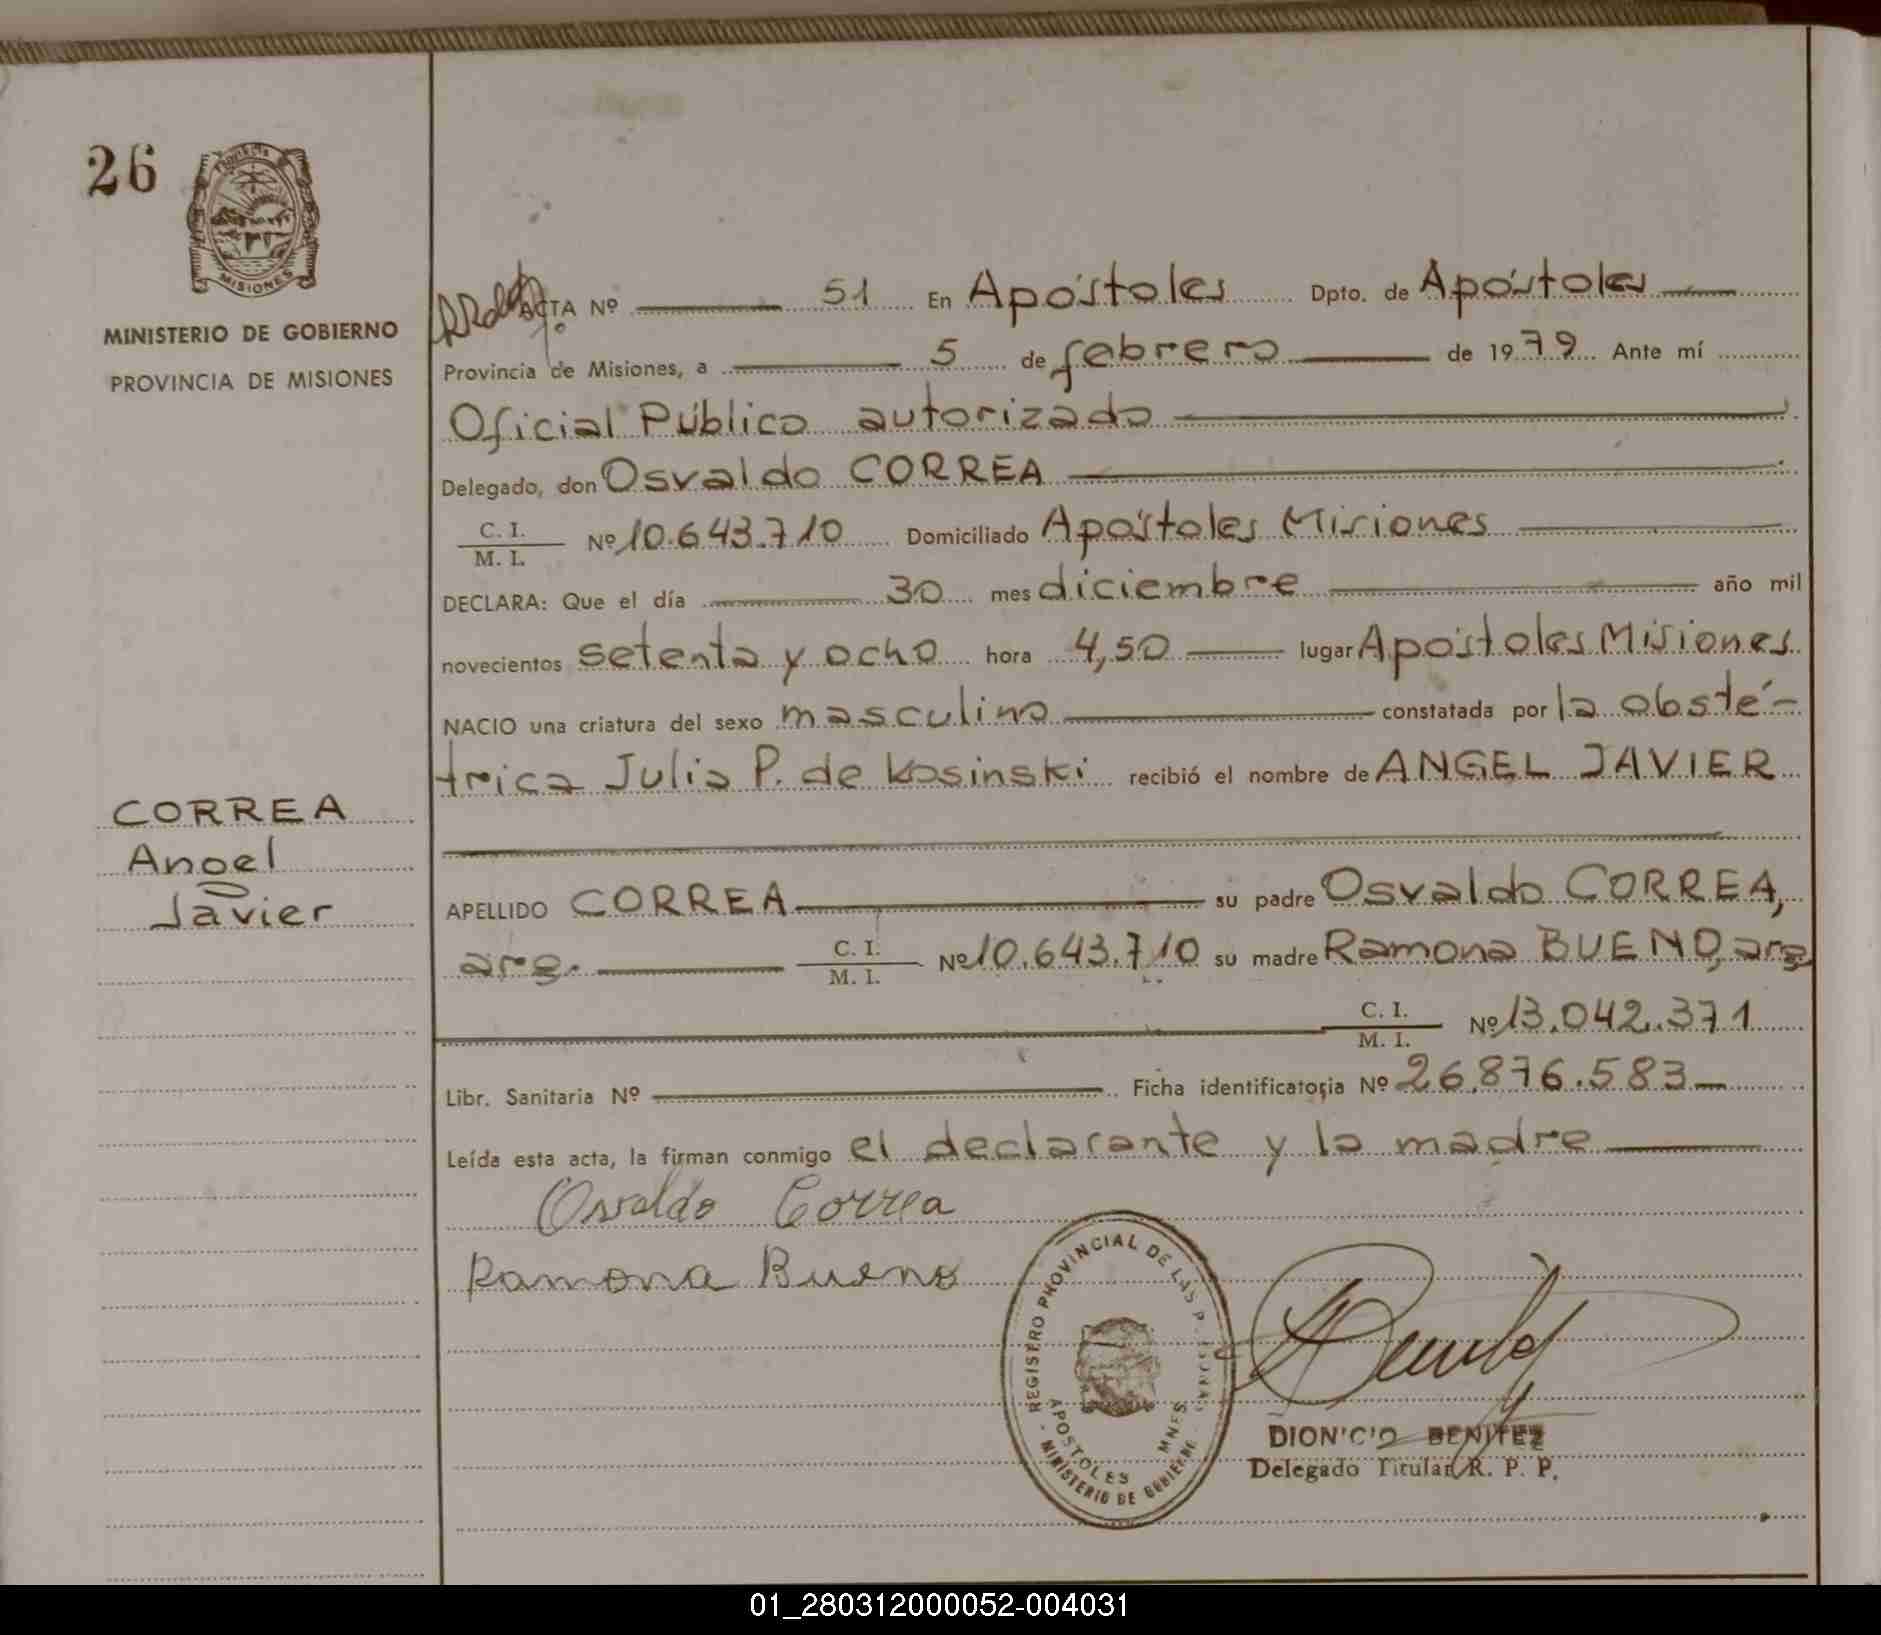 26
MISIONES
MINISTERIO DE GOBIERNO
PROVINCIA DE MISIONES
CORREA
Angel
Javier
ACTA Nº 51 En Apóstoles Dpto. de Apóstoles
Provincia de Misiones, a 5 de febrero de 1979. Ante mí
Oficial Público autorizado
Delegado, don Osvaldo CORREA
C. I.
M. I. Nº 10.643.710 Domiciliado Apóstoles Misiones
DECLARA: Que el día 30 mes diciembre año mil
novecientos setenta y ocho hora 4,50 lugar Apóstoles Misiones
NACIO una criatura del sexo masculino constatada por la obsté-
trica Julia P. de Kosinski recibió el nombre de ANGEL JAVIER
APELLIDO CORREA su padre Osvaldo CORREA,
arg. C. I.
M. I. Nº 10.643.710 su madre Ramona BUENO, arg
C. I.
M. I. Nº 13.042.371
Libr. Sanitaria Nº Ficha identificatoria Nº 26.876.583
Leída esta acta, la firman conmigo el declarante y la madre
Osvaldo Correa
Ramona Bueno
REGISTRO PROVINCIAL DE LAS
APOSTOLES MNES.
MINISTERIO DE GOBIERNO
DIONICIO BENITEZ
Delegado Titular R. P. P.
01_280312000052-004031